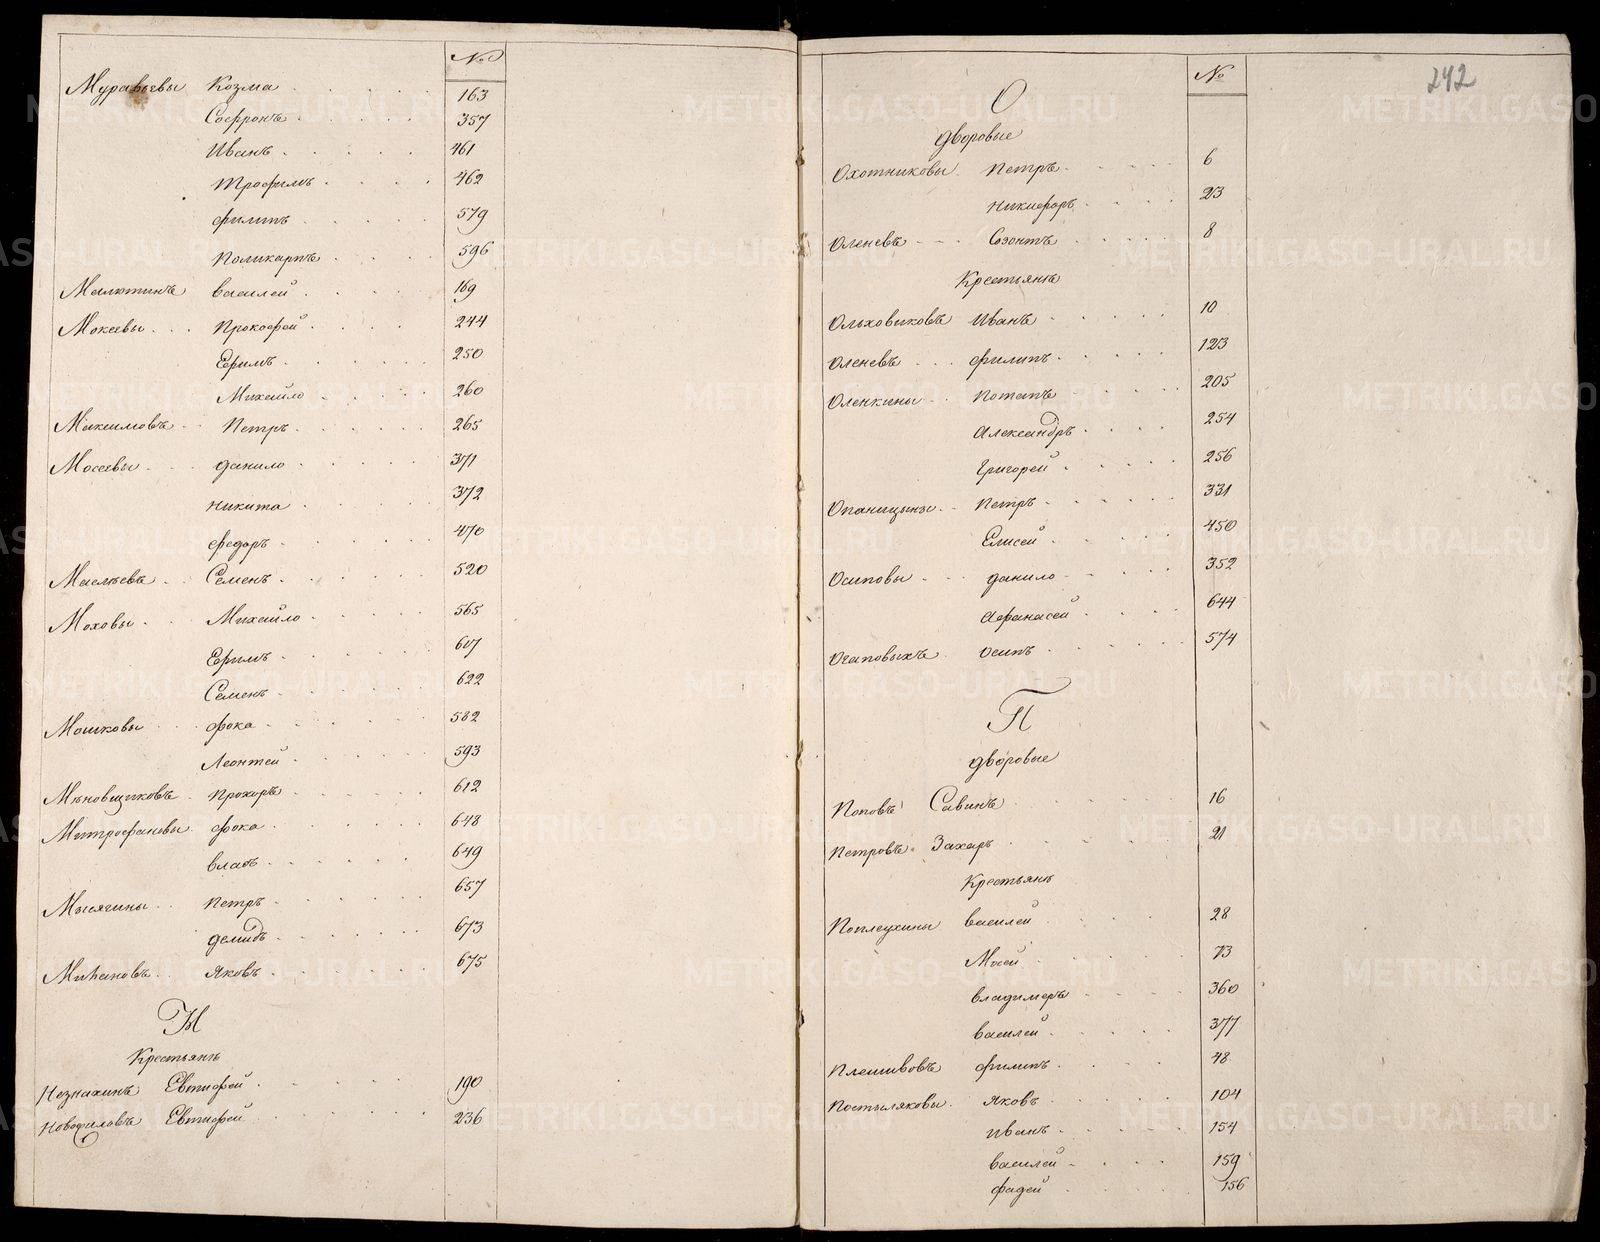 №
Муравьевы Козма 163
Софронъ 357
Иванъ 461
Трофимъ 462
Филипъ 579
Поликарпъ 596
Малютинъ Василей 169
Мокеевы Прокофей 244
Ефимъ 250
Михайло 260
Максимовъ Петръ 265
Мосеевы Данило 371
Никита 372
Федоръ 470
Маслѣевъ Семенъ 520
Моховы Михайло 565
Ефимъ 607
Семенъ 622
Мошковы Фока 582
Леонтей 593
Мѣновщиковъ Прохоръ 612
Митрофановы Фока 648
Власъ 649
Мысягины Петръ 657
Демидъ 673
Яковъ 675
Н
Крестьянъ
Незнахинъ Евтифей 190
Евтифей 236
242
№
О
Дворовые
Охотниковы Петръ 6
Никифоръ 23
Оленевъ Созонтъ 8
Крестьянъ
Ольховиковъ Иванъ 10
Оленевъ Филипъ 123
Оленкины Потапъ 205
Александръ 254
Григорей 256
Опаницыны Петръ 331
Елисей 450
Осиповы Данило 352
Афанасей 644
Осиповыхъ Осипъ 574
П
Дворовые
Поповъ Савинъ 16
Петровъ Захаръ 21
Крестьянъ
Поплеухины Василей 28
Мосей 73
Владимеръ 360
Василей 377
Плешивовъ Филипъ 48
Постыляковы Яковъ 104
Иванъ 154
Василей 159
Фадей 156
METRIKI.GASO-URAL.RU